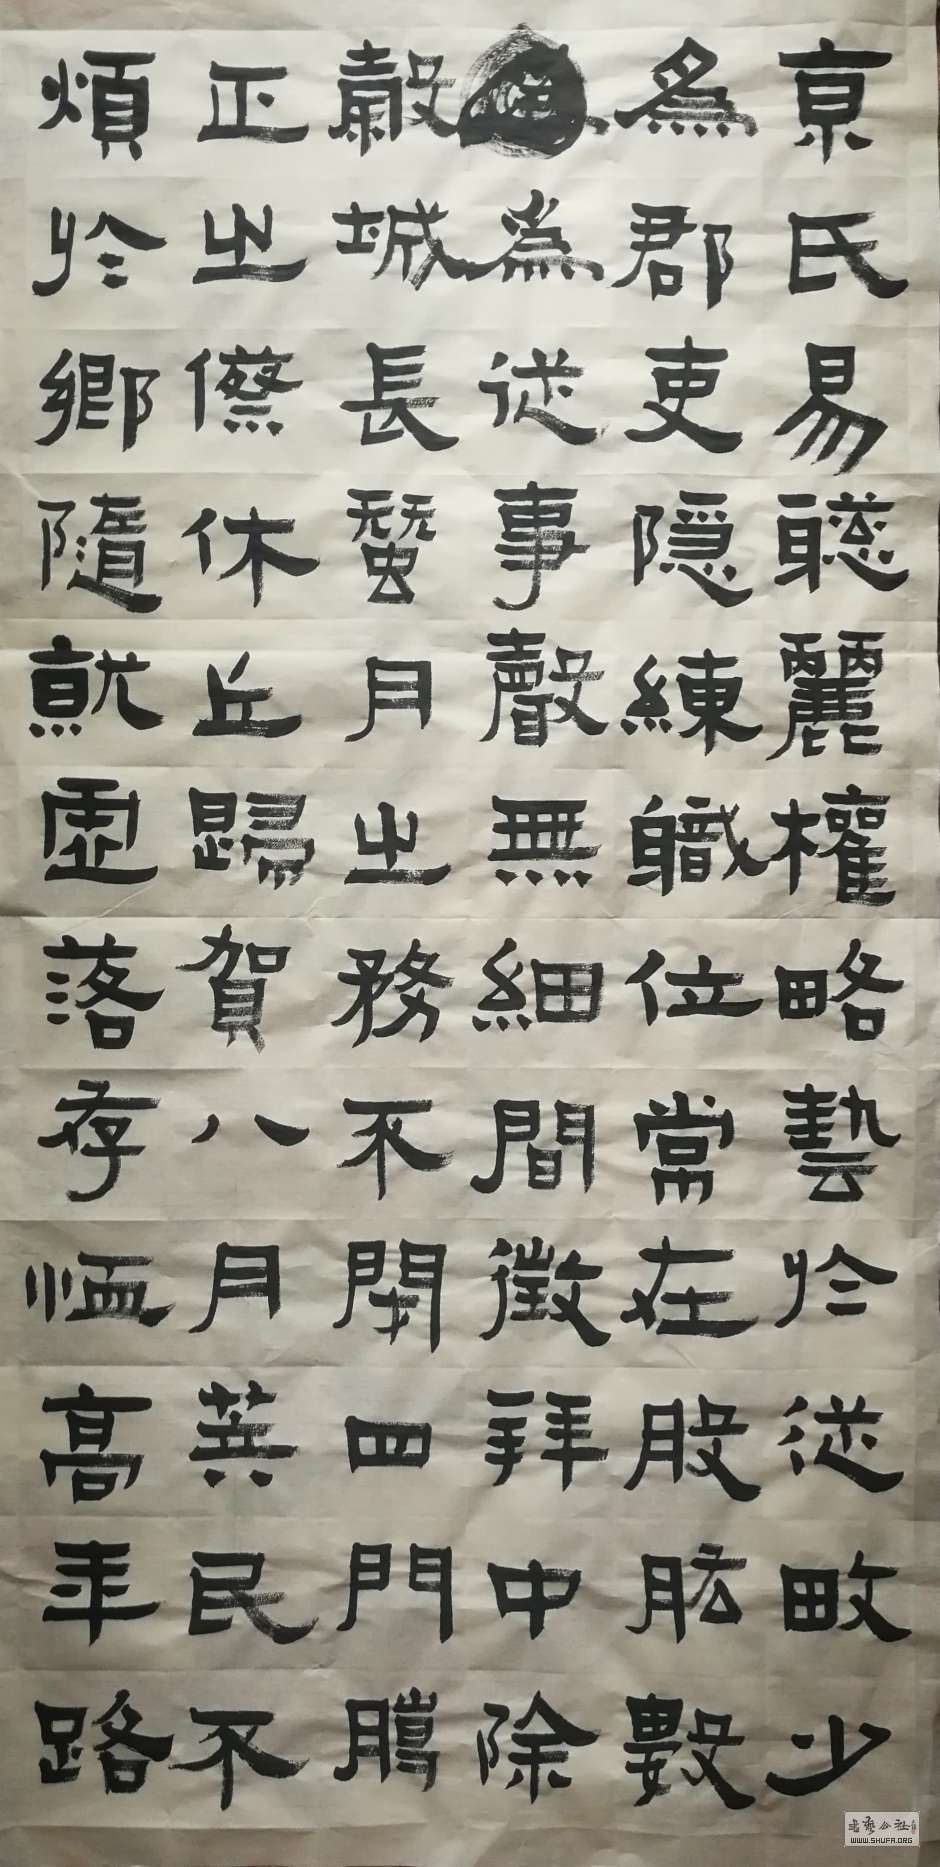 京氏易聰麗權略藝於從畋少
為郡吏隱練職位常在股肱數
為從事聲無細聞徵拜中除
穀城長蠶月之務不閉四門腊
正之僚休囚歸賀八月筭民不
煩於鄉隨就虛落存恤高年路
WWW.SHUFA.ORG